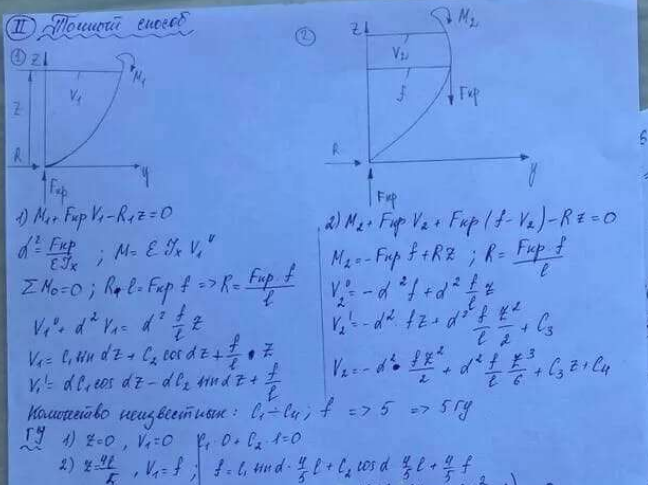 II Точный способ
1 z
M₁
V₁
z
R
y
Fкр
2 z
M₂
V₂
f
Fкр
R
y
Fкр
1) M₁ + Fкр V₁ - R₁ z = 0
α² = Fкр/EJx ; M = E Jx V₁''
ΣM₀ = 0 ; R·l = Fкр f => R = Fкр f/l
V₁'' + α² V₁ = α² f/l z
V₁ = C₁ sin αz + C₂ cos αz + f/l · z
V₁' = αC₁ cos αz - αC₂ sin αz + f/l
2) M₂ + Fкр V₂ + Fкр (f - V₂) - Rz = 0
M₂ = -Fкр f + Rz ; R = Fкр f/l
V₂'' = -α² f + α² f/l z
V₂' = -α² · fz + α² f/l z²/2 + C₃
V₂ = -α² · fz²/2 + α² f/l z³/6 + C₃ z + C₄
Количество неизвестных: C₁ ÷ C₄ ; f => 5 => 5 ГУ
ГУ 1) z = 0 , V₁ = 0 | C₁ · 0 + C₂ · 1 = 0
2) z = 4l/5 , V₁ = f ; f = C₁ sin α · 4/5 l + C₂ cos α 4/5 l + 4/5 f